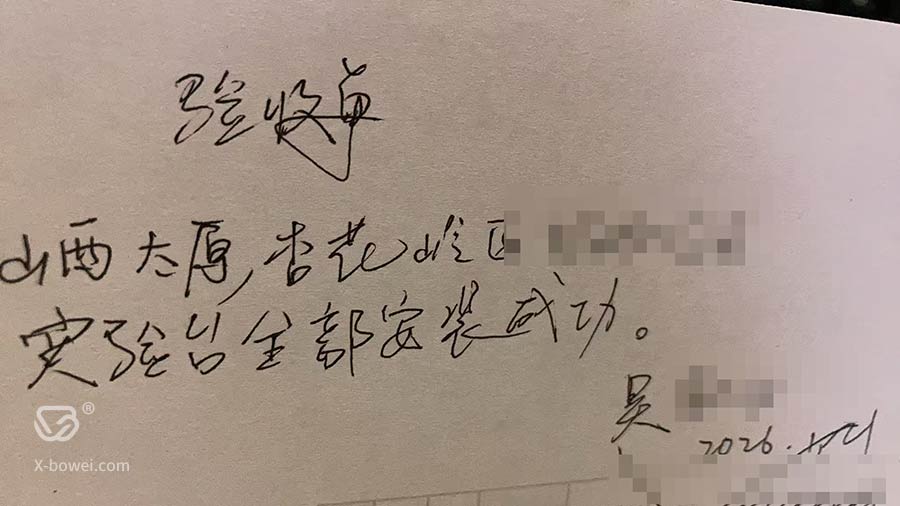 验收单
山西太原,杏花岭区
实验台全部安装成功。
吴
2026.
®
X-bowei.com